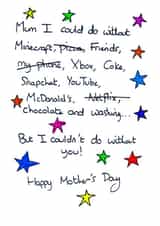 Mum I could do without
Minecraft, pizza, Friends,
my phone, Xbox, Coke,
Snapchat, YouTube,
McDonald's, Netflix,
chocolate and washing...
But I couldn't do without
you!
Happy Mother's Day